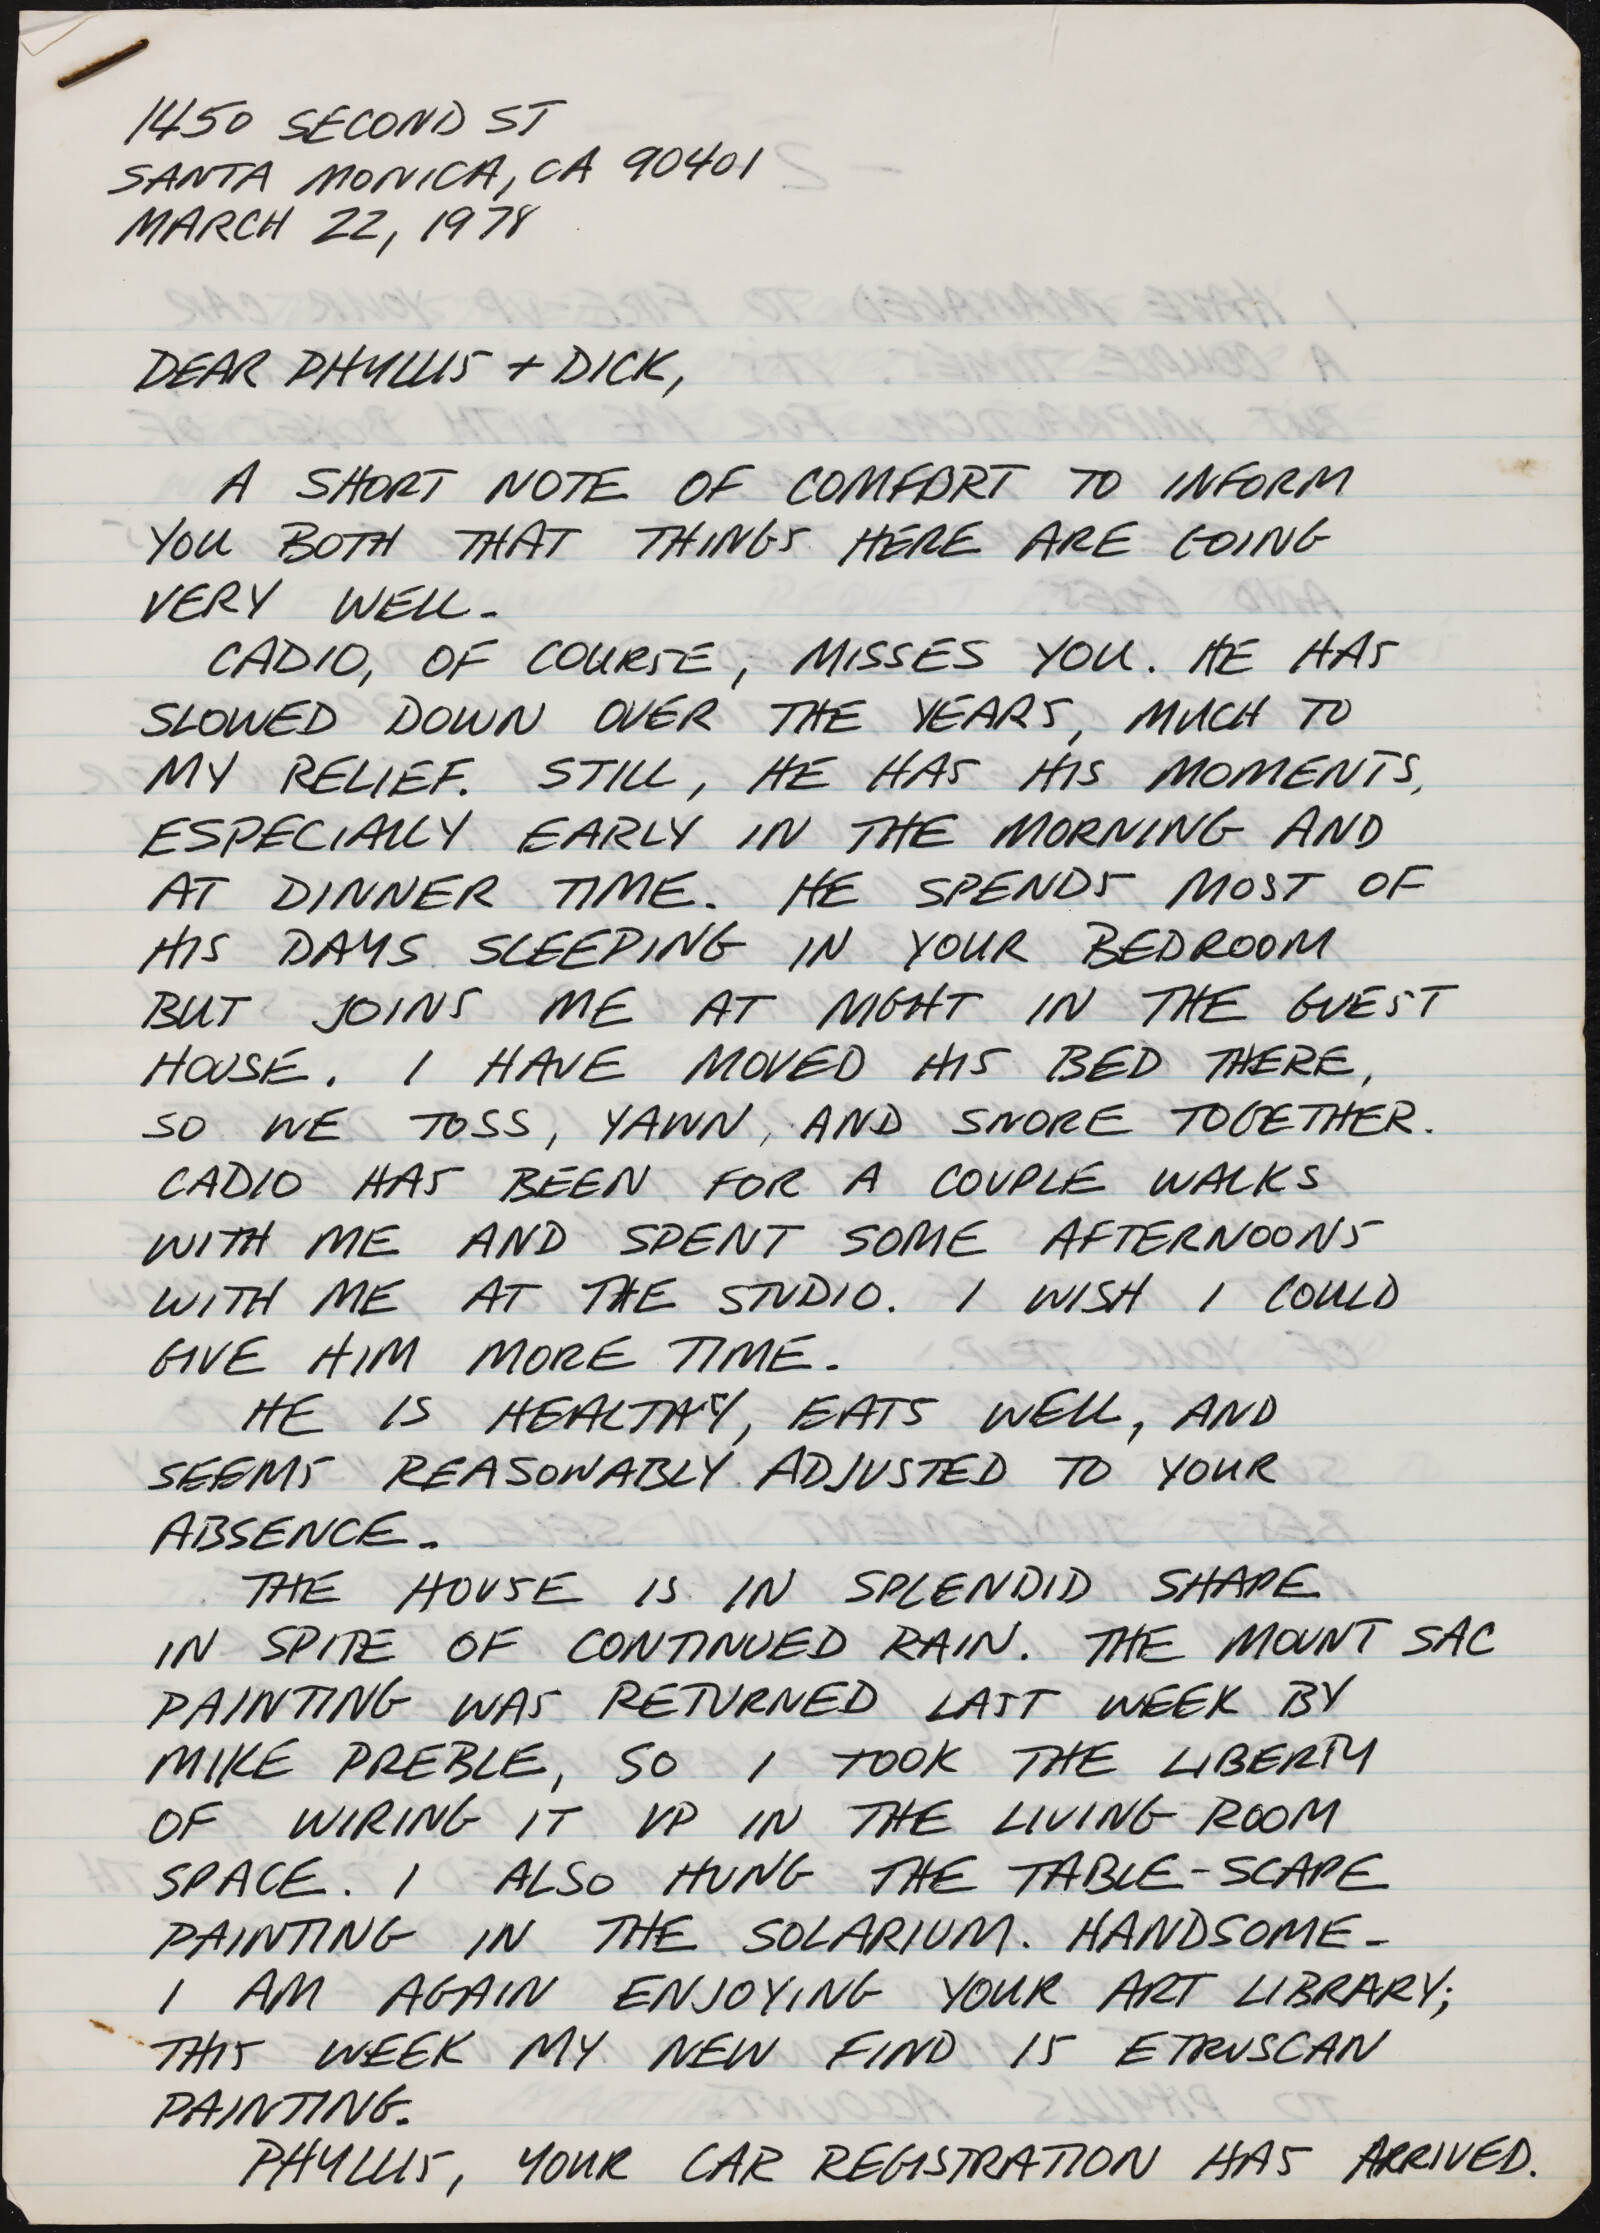 1450 SECOND ST
SANTA MONICA, CA 90401
MARCH 22, 1978
DEAR PHYLLIS + DICK,
A SHORT NOTE OF COMFORT TO INFORM
YOU BOTH THAT THINGS HERE ARE GOING
VERY WELL.
CADIO, OF COURSE, MISSES YOU. HE HAS
SLOWED DOWN OVER THE YEARS, MUCH TO
MY RELIEF. STILL, HE HAS HIS MOMENTS,
ESPECIALLY EARLY IN THE MORNING AND
AT DINNER TIME. HE SPENDS MOST OF
HIS DAYS SLEEPING IN YOUR BEDROOM
BUT JOINS ME AT NIGHT IN THE GUEST
HOUSE. I HAVE MOVED HIS BED THERE,
SO WE TOSS, YAWN, AND SNORE TOGETHER.
CADIO HAS BEEN FOR A COUPLE WALKS
WITH ME AND SPENT SOME AFTERNOONS
WITH ME AT THE STUDIO. I WISH I COULD
GIVE HIM MORE TIME.
HE IS HEALTHY, EATS WELL, AND
SEEMS REASONABLY ADJUSTED TO YOUR
ABSENCE.
THE HOUSE IS IN SPLENDID SHAPE
IN SPITE OF CONTINUED RAIN. THE MOUNT SAC
PAINTING WAS RETURNED LAST WEEK BY
MIKE PREBLE, SO I TOOK THE LIBERTY
OF WIRING IT UP IN THE LIVING ROOM
SPACE. I ALSO HUNG THE TABLE-SCAPE
PAINTING IN THE SOLARIUM. HANDSOME.
I AM AGAIN ENJOYING YOUR ART LIBRARY;
THIS WEEK MY NEW FIND IS ETRUSCAN
PAINTING.
PHYLLIS, YOUR CAR REGISTRATION HAS ARRIVED.